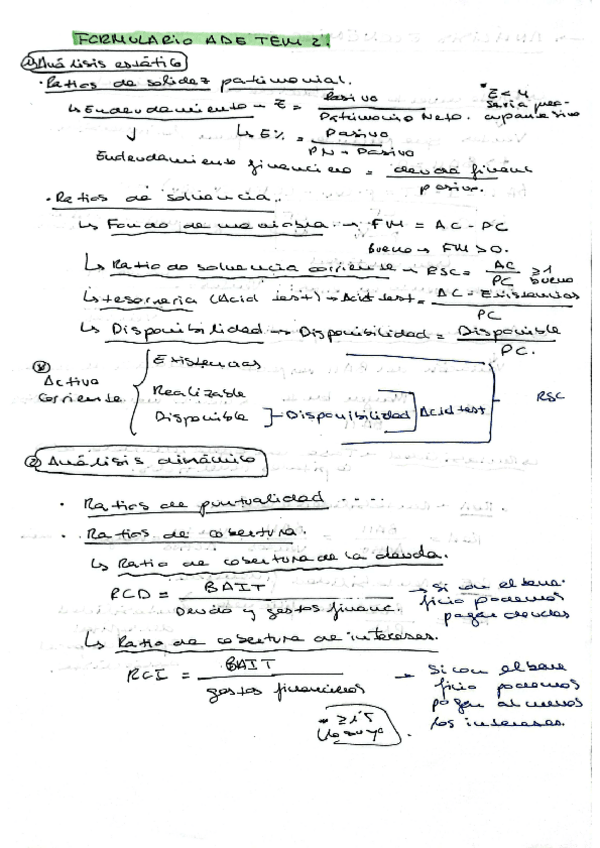 FORMULARIO ADE TEM 2.
① Análisis estático
· Ratios de solidez patrimonial.
↳ Endeudamiento → E = Pasivo / Patrimonio Neto.
↳ E% = Pasivo / PN + Pasivo
Endeudamiento financiero = deuda financ / pasivo.
· Ratios de solvencia.
↳ Fondo de maniobra → FM = AC - PC
bueno → FM > 0.
↳ Ratio de solvencia corriente → RSC = AC / PC ≥ 1 bueno
↳ tesorería (Acid test) → Acid test = AC - Existencias / PC
↳ Disponibilidad → Disponibilidad = Disponible / PC.
Activo corriente
Existencias
Realizable
Disponible
Disponibilidad
Acid test
RSC
② Análisis dinámico
· Ratios de puntualidad ....
· Ratios de cobertura.
↳ Ratio de cobertura de la deuda.
RCD = BAIT / Deuda y gastos financ. → Si con el bene-
ficio podemos
pagar deudas
↳ Ratio de cobertura de intereses.
RCI = BAIT / gastos financieros → Si con el bene
ficio podemos
pagar al menos
los intereses.